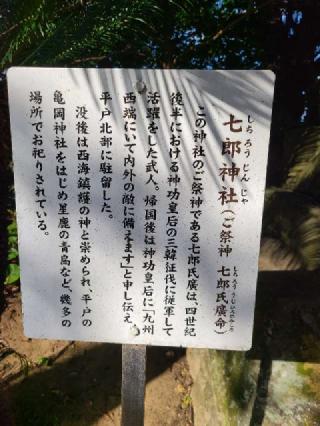 七郎神社(ご祭神 七郎氏廣命)
しちろうどんじゃ
しちろううじひろのみこと
この神社のご祭神である七郎氏廣は、四世紀
後半における神功皇后の三韓征伐に従軍して
活躍をした武人。帰国後は神功皇后に「九州
西端にいて内外の敵に備えます」と申し伝え
平戸北部に駐留した。
没後は西海鎮護の神と崇められ、平戸の
亀岡神社をはじめ星鹿の青島など、幾多の
場所でお祀りされている。